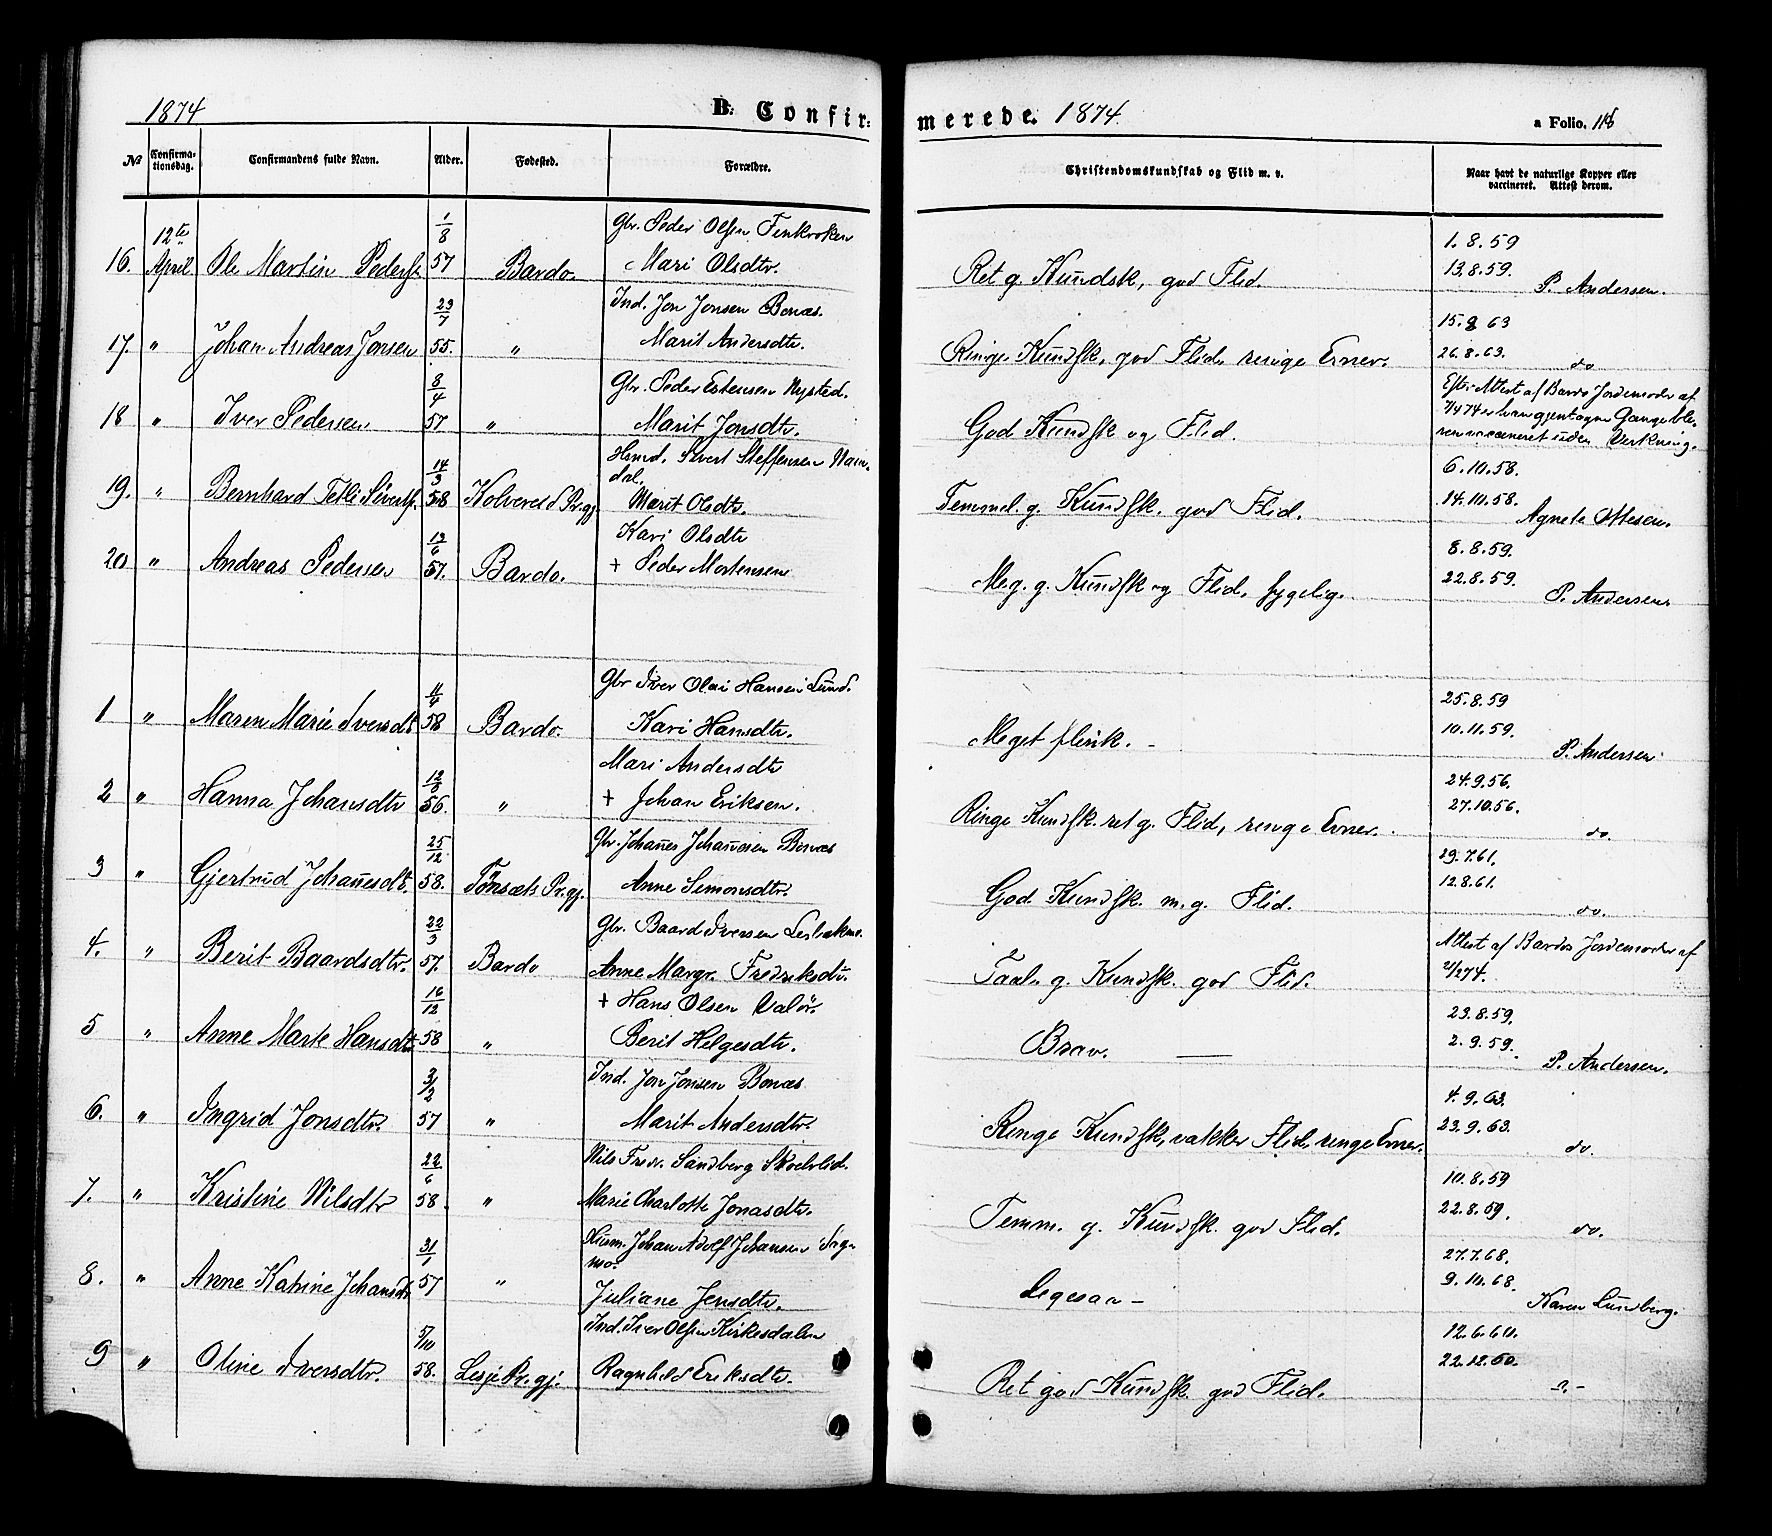 1874 B. Confirmerede. 1874 a Folio. 118
No Confirmationsdag. Confirmandens fulde Navn. Alder. Fødested. Forældre. Christendomskundskab og Flid m. v. Naar havt de naturlige Kopper eller vaccineret. Attest derom.
12te 1/8 Gbr. Peder Olsen Finkroken 1.8.59
16. April Ole Martin Peders. 57 Bardo. Mari Olsdtr. Ret g. Kundsk, god Flid. 13.8.59. P. Andersen.
23/7 Ind. Jon Jonsen Bonæs. 15.8 63
17. " Johan Andreas Jonsen 55. " Marit Andersdtr. Ringe Kundsk, god Flid, ringe Evner. 26.8.63. do
8/4 Gbr. Peder Estensen Nysted. Eft. Attest af Bardo Jordemoder af
18 " Iver Pedersen 57 " Marit Jonsdtr. God Kundsk og Flid. 7/4 74 er han gjentagne Gange ble-
ven vaccineret uden Virkning.
14/3 Husmd. Sivert Steffensen Nam- 6.10.58.
dal.
19. " Bernhard Tetli Siverts. 58 Kolvereid Pr.gj. Marit Olsdtr. Temmel. g. Kundsk. god Flid. 14.10.58. Agnete Olesen.
12/6 Kari Olsdtr 8.8.59.
20 " Andreas Pedersen 57. Bardo. + Peder Mortensen Meg. g. Kundsk og Flid, sygelig. 22.8.59. P. Andersen
11/4 Gbr Iver Olai Hansen Lund. 25.8.59
1 " Maren Marie Iversdt. 58 Bardo. Kari Hansdtr. Meget flink. - 10.11.59. P. Andersen
Mari Andersdtr 24.9.56.
2 " Hanna Johansdtr 56. " + Johan Eriksen. Ringe Kundsk. ret g. Flid, ringe Evner. 27.10.56. do.
25/12 Gbr. Johannes Johannesen Bonæs 29.7.61.
3 " Gjertrud Johannesdt. 58. Tönsæts Pr.gj. Anne Simonsdtr. God Kundsk. m. g. Flid. 12.8.61. do.
22/3 Gbr. Baard Iversen Attest af Bardos Jordemoder af
4. " Berit Baardsdtr. 57. Bardo Anne Margr. Fredriksdtr. Taal. g. Kundsk. god Flid. 2/2 74.
16/12 + Hans Olsen Valör. 23.8.59.
5 " Anne Marte Hansdtr. 58 " Berit Helgesdtr. Brav. — 2.9.59. P. Andersen.
3/2 Ind. Jon Jonsen Bonæs 4.9.63.
6. " Ingrid Jonsdtr. 57 " Marit Andersdtr. Ringe Kundsk, vakker Flid, ringe Evner. 23.9.63. do.
22/6 Nils Fredr. Sandberg Skoelvlid. 10.8.59
7. " Kristine Nilsdtr 58. " Marie Charlotte Jonasdtr. Temm. g. Kundsk. god Flid. 22.8.59. do.
31/1 Husm. Johan Adolf Johansen Sørg- 27.7.68.
mo.
8. " Anne Katrine Johansdtr 57 " Juliane Jensdtr. Ligesaa - 9.10.68. Karen Lundberg.
5/10 Ind. Iver Olsen Kirkesdalen 12.6.60.
9 " Oline Iversdtr. 58. Lesje Pr.gj. Ragnhild Eriksdtr. Ret god Kundsk. god Flid. 22.12.60.